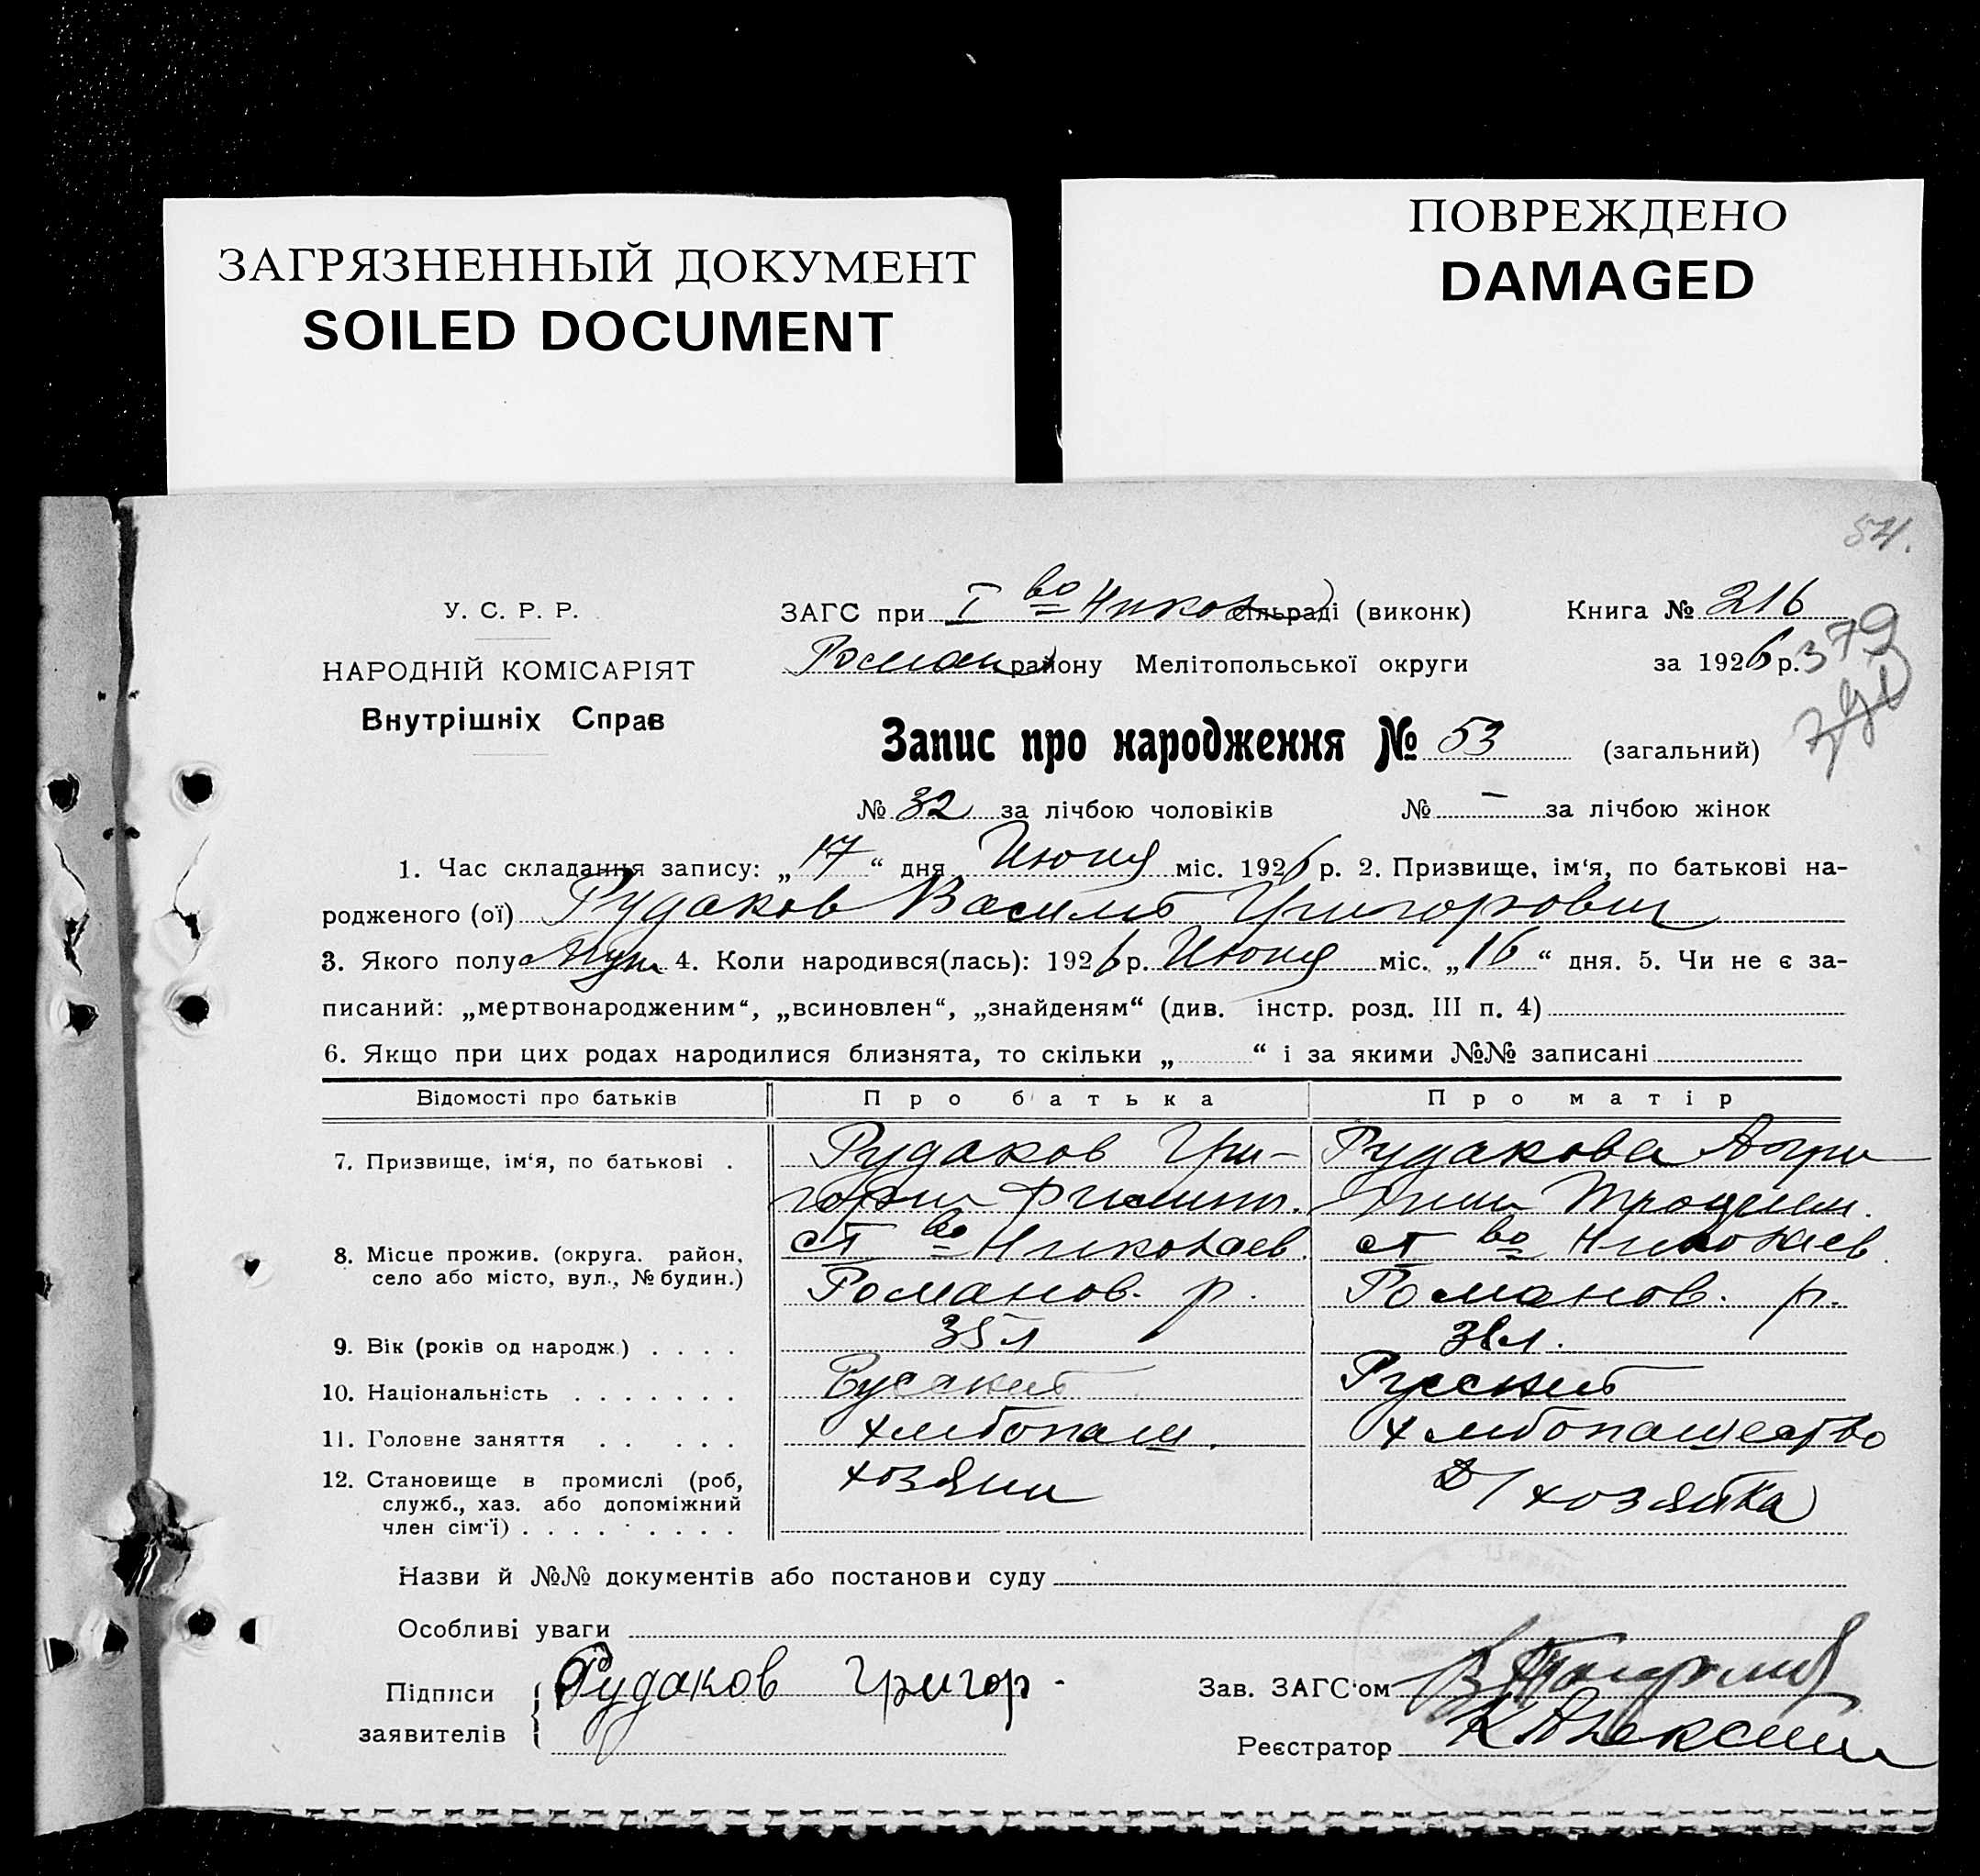 ЗАГРЯЗНЕННЫЙ ДОКУМЕНТ
SOILED DOCUMENT
ПОВРЕЖДЕНО
DAMAGED
54.
У. С. Р. Р.
НАРОДНІЙ КОМІСАРІЯТ
Внутрішніх Справ
ЗАГС при I во Никол сільраді (виконк)
Книга № 216
Роман району Мелітопольської округи
за 1926 р. 379
Запис про народження № 53 (загальний)
№ 32 за лічбою чоловіків № — за лічбою жінок
1. Час складання запису: „17“ дня Июня міс. 1926 р. 2. Призвище, ім‘я, по батькові на-
родженого (ої) Рудаков Василий Григорович
3. Якого полу Муж 4. Коли народився(лась): 1926 р. Июня міс. „16“ дня. 5. Чи не є за-
писаний: „мертвонародженим“, „всиновлен“, „знайденям“ (див. інстр. розд. III п. 4)
6. Якщо при цих родах народилися близнята, то скільки „ “ і за якими №№ записані
Відомості про батьків Про батька Про матір
7. Призвище, ім‘я, по батькові . Рудаков Гри- Рудакова Агри
8. Місце прожив. (округа. район, ст во Николаев. ст во Николаев.
село або місто, вул., № будин.) Романов. р. Романов. р.
9. Вік (років од народж.) . . . . 35 л 38 л.
10. Національність . . . . . . . Русский Русский
11. Головне заняття . . . . . Хлибопаш. Хлибопашество
12. Становище в промислі (роб, хозяин Д/хозяйка
служб., хаз. або допоміжний
член сім‘ї) . . . . . . . . .
Назви й №№ документів або постанови суду
Особливі уваги
Підписи
заявителів
Рудаков Григор.
Зав. ЗАГС‘ом
Реєстратор